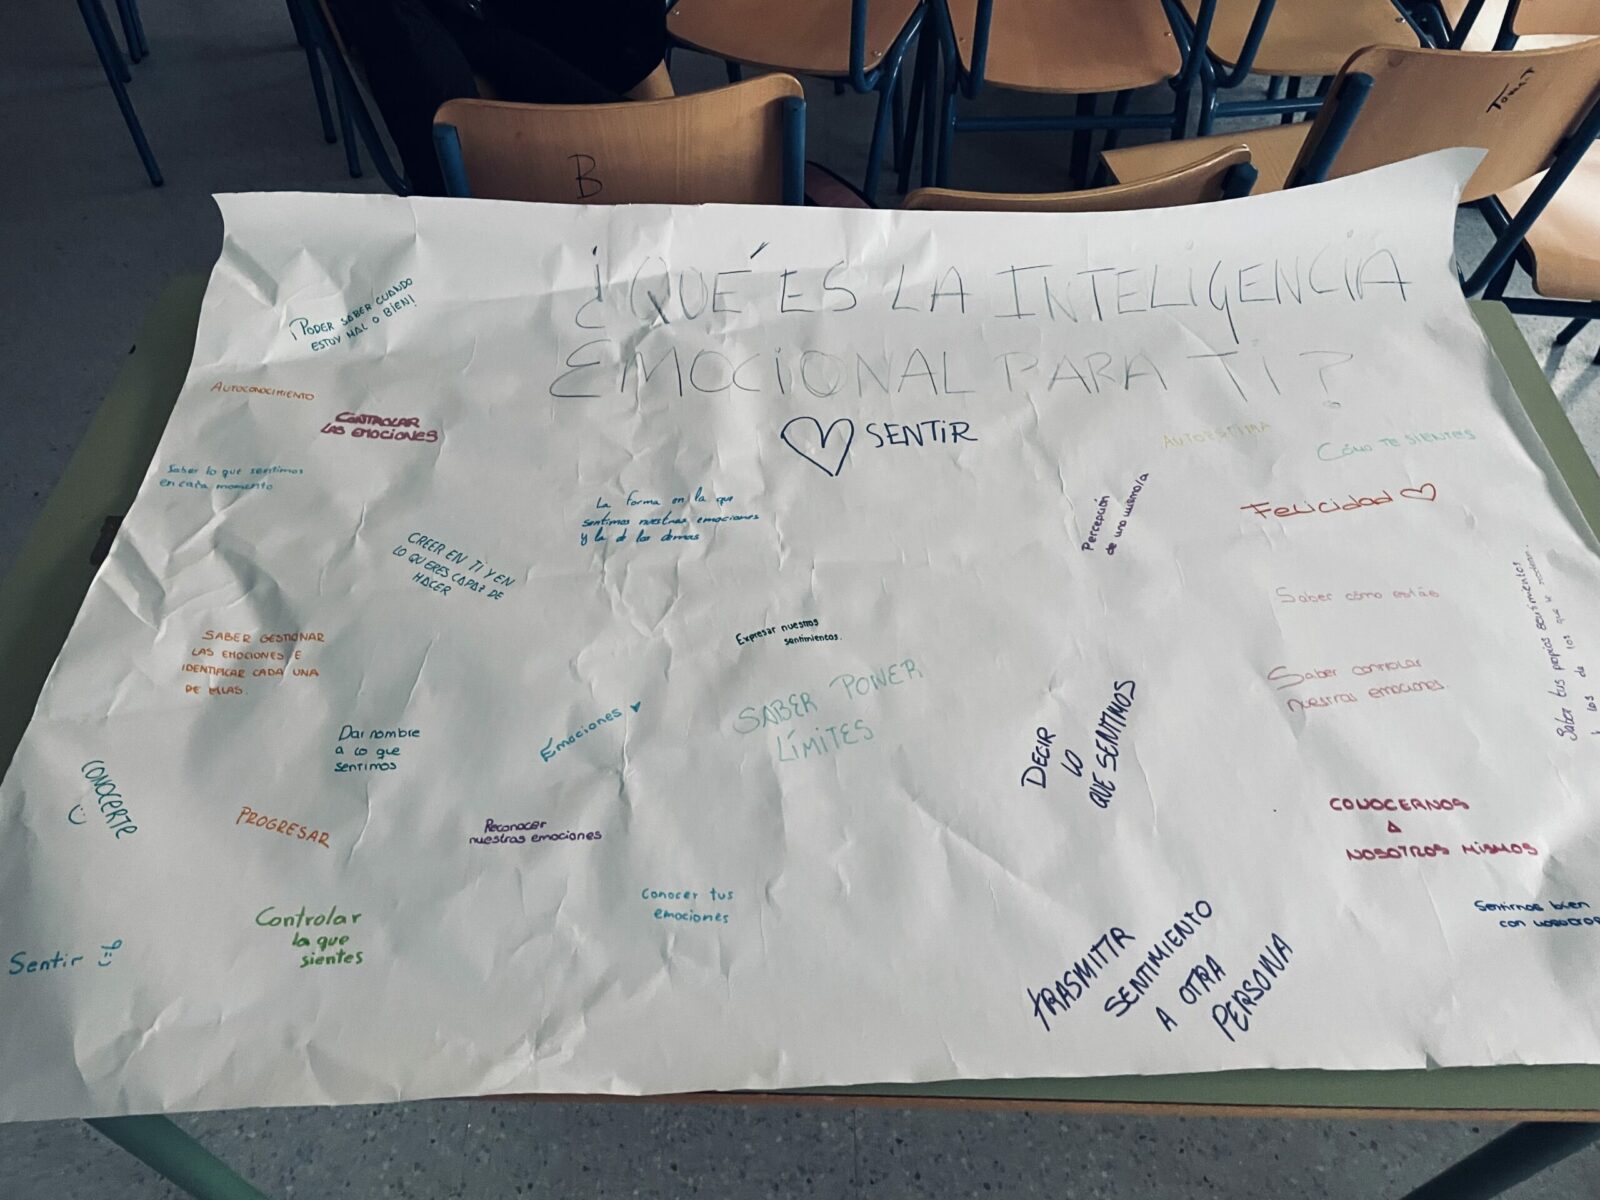 B
Tomat
¿QUÉ ES LA INTELIGENCIA
EMOCIONAL PARA TI?
¡PODER SABER CUANDO
ESTOY MAL O BIEN!
AUTOCONOCIMIENTO
CONTROLAR
LAS EMOCIONES
SENTIR
AUTOESTIMA
CÓMO TE SIENTES
Saber lo que sentimos
en cada momento
La forma en la que
sentimos nuestras emociones
y la de los demas
Percepción
de uno mismo/a
Felicidad
CREER EN TI Y EN
LO QUE ERES CAPAZ DE
HACER
Saber cómo estás
Saber tus propios sentimientos
y los de los que te rodean.
SABER GESTIONAR
LAS EMOCIONES E
IDENTIFICAR CADA UNA
DE ELLAS.
Expresar nuestros
sentimientos.
SABER PONER
LÍMITES
Saber controlar
nuestras emociones
Dar nombre
a lo que
sentimos
Emociones
DECIR
LO
QUE SENTIMOS
CONOCERTE
PROGRESAR
Reconocer
nuestras emociones
CONOCERNOS
A
NOSOTROS MISMOS
Conocer tus
emociones
Controlar
lo que
sientes
Sentir
TRASMITIR
SENTIMIENTO
A OTRA
PERSONA
Sentirnos bien
con nosotros